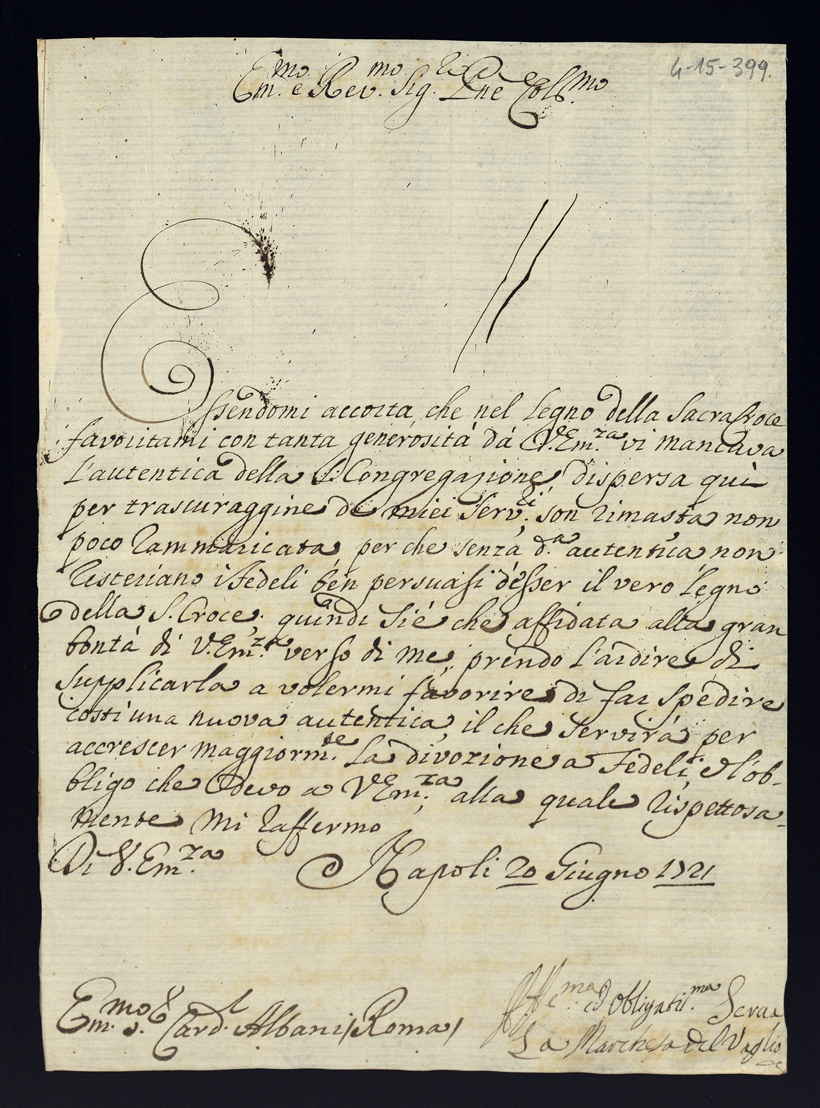 4-15-399.
Em.mo e Rev.mo Sig.re Pne Col.mo
Essendomi accorta che nel Legno della Sacra Croce
favoritami con tanta generosità da V. Em.za vi mancava
l'autentica della S. Congregazione, dispersa quì
per trascuraggine de miei Serv.ri, son rimasta non
poco rammaricata, per che senza d.a autentica non
resteriano i Fedeli ben persuasi d'esser il vero Legno
della S. Croce; quindi si è che affidata alla gran
bontà di V. Em.za verso di me, prendo l'ardire di
supplicarla a volermi favorire di far spedire
costì una nuova autentica, il che servirà per
accrescer maggiorm.te la divozione a Fedeli, e l'ob-
bligo che devo a V. Em.za, alla quale rispettosa-
mente mi raffermo
Di V. Em.za Napoli 20 Giugno 1721
Em.mo S. Card.l Albani / Roma /
Aff.ma ed Obligatis.ma Serva
La Marchesa del Vaglio